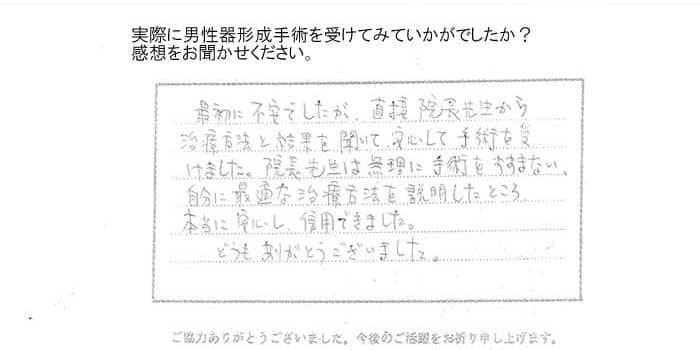 実際に男性器形成手術を受けてみていかがでしたか？
感想をお聞かせください。
最初に不安でしたが、直接院長先生から
治療方法と結果を聞いて、安心して手術を受
けました。院長先生は無理に手術をすすまない、
自分に最適な治療方法を説明したところ、
本当に安心し、信用できました。
どうもありがとうございました。
ご協力ありがとうございました。今後のご活躍をお祈り申し上げます。